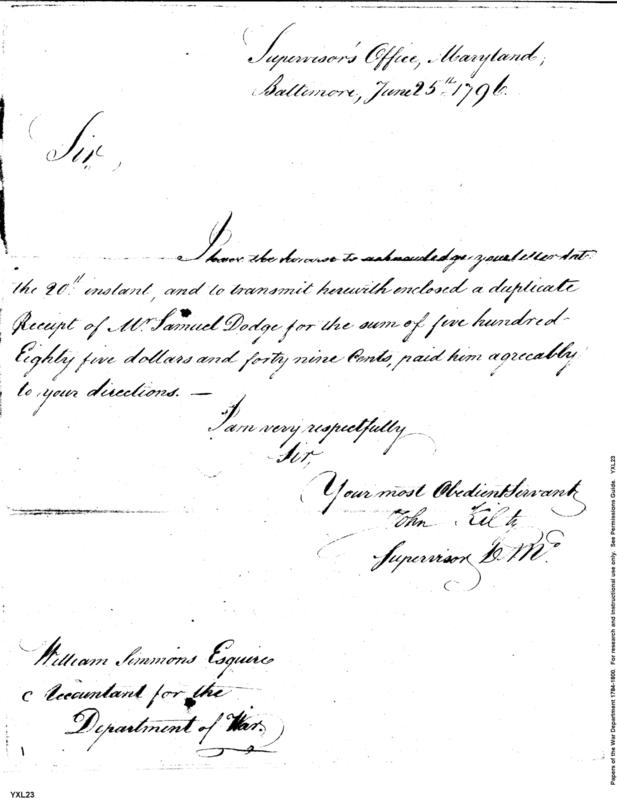 Supervisor's Office, Maryland,
Baltimore, June 25th 1796.
Sir,
I have the honour to acknowledge your letter dat:
the 20th instant, and to transmit herewith enclosed a duplicate
Receipt of Mr. Samuel Dodge for the sum of five hundred
Eighty five dollars and forty nine Cents, paid him agreeably
to your directions. —
I am very respectfully
Sir,
Your most Obedient Servant
John Kilty
Supervisor D. Md.
William Simmons Esquire
Accountant for the
Department of War.
YXL23
Papers of the War Department 1784-1800. For research and instructional use only. See Permissions Guide. YXL23